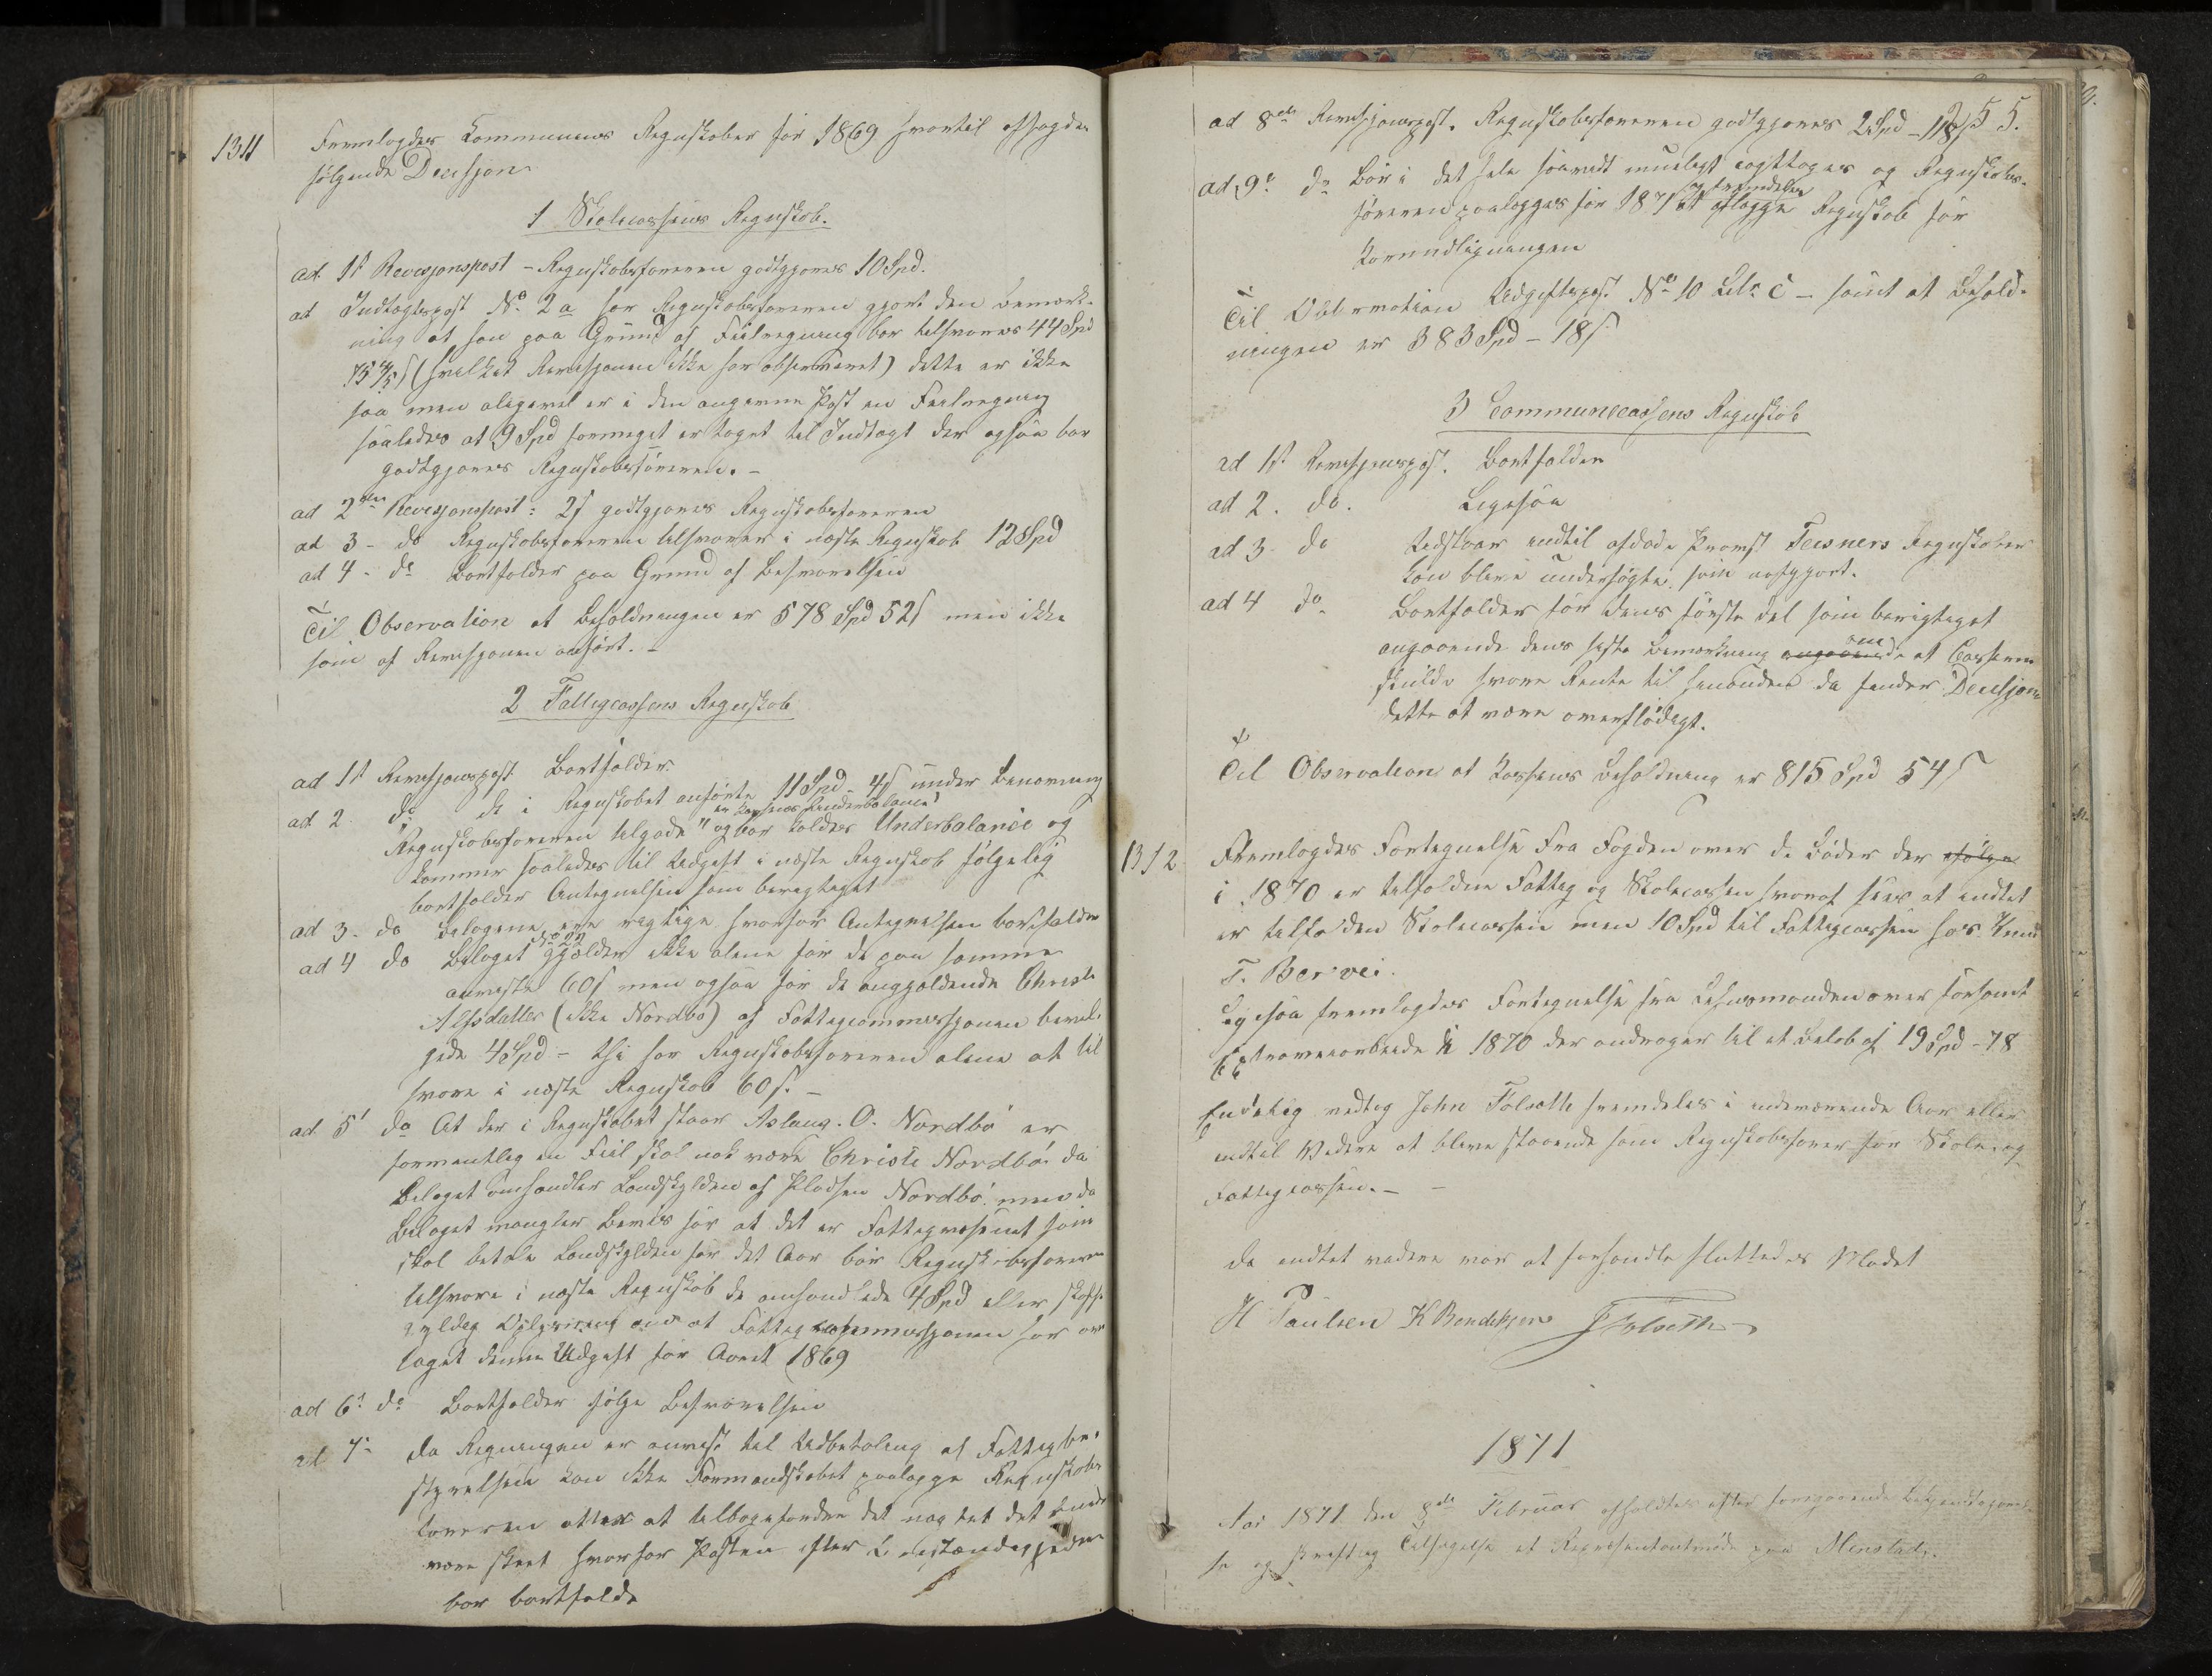 1311 Fremlagdes Kommunens Regnskaber for 1869 hvortil afsagdes
følgende Decisjon
1 Skolecassens Regnskab.
ad 1st Revisjonspost – Regnskabsføreren godtgjøres 10 Spd.
ad Indtægtspost No 2a har Regnskabsføreren gjort den Bemærk-
ning at han paa Grund af Feilregning bør tilsvare 44 Spd
(hvilket Revisjonen ikke har observeret) dette er ikke
saa men alligevel er i den angivne Post en Feilregning
saaledes at 9 Spd formeget er taget til Indtægt der ogsaa bør
godtgjøres Regnskabsføreren. –
ad 2den Revisjonspost: 2 s godtgjøres Regnskabsføreren
ad 3 – do Regnskabsføreren tilsvarer i næste Regnskab 12 Spd
ad 4 – do Bortfalder paa Grund af Besvarelsen
Til Observation at Beholdningen er 578 Spd 52 s men ikke
som af Revisjonen anført. –
2 Fattigcassens Regnskab
ad 1st Revisjonspost Bortfalder.
ad 2. do. De i Regnskabet anførte 11 Spd – 4 s under Benævning
er Kassens Underbalance
"Regnskabsføreren tilgode" og bør kaldes Underbalance og
kommer saaledes til Udgift i næste Regnskab følgelig
bortfalder Antegnelsen som berigtiget
ad 3. do Bilagene ere rigtige hvorfor Antegnelsen bortfalder
No 22
ad 4 do Bilaget gjælder ikke alene for de paa samme
anviste 60 s men ogsaa for de angjældende Christi
Alfsdatter (ikke Nordbø) af Fattigcommissjonen bevil-
gede 4 Spd – thi har Regnskabsføreren alene at til
svare i næste Regnskab 60 s. –
ad 5' do At der i Regnskabet staar Aslaug. O. Nordbø er
formentlig en Feil skal nok være Christi Nordbø da
Bilaget omhandler Landskylden af Pladsen Nordbø men da
Bilaget mangler Bevis for at det er Fattigvæsenet som
skal betale Landskylden for det Aar bør Regnskabsføreren
tilsvare i næste Regnskab de omhandlede 4 Spd eller skaffe
gyldig Oplysning om at Fattigcommissjonen har ov
taget denne Udgift for Aaret 1869
ad 6' do Bortfalder følge Besvarelsen
ad 7' da Regningen er anvist til Udbetaling af Fattigbe-
styrelsen kan ikke Formandskabet paalægge Regnskabs
føreren at tilbagefordre det nagtet det burde
være skeet hvorfor Posten efter Omstændighederne
bør bortfalde
55.
ad 8de Revisjonspost. Regnskabsføreren godtgjøres 2 Spd – 118 s
ad 9' do Bør i det hele saavidt mueligt iagttages og Regnskabs-
fremdeles
føreren paalægges for 1871 at aflægge Regnskab for
Kornudligningen
Til Observation Udgiftspost No 10 Litr C – samt at Behold-
ningen er 383 Spd – 18 s
3 Communecassens Regnskab
ad 1st Revisjonspost. Bortfalder
ad 2. do. Ligesaa
ad 3. do Udstaar indtil afdøde Provst Teisners Regnskaber
kan blive undersøgte som opgjort.
ad 4 do Bortfalder for dens første del som berigtiget
om
angaaende dens sidste Bemærkning angaaende at Cassereren
skulde svare Rente til henanden da finder Decisjonen
dette at være overflødigt.
Til Observation at Kassens Beholdning er 815 Spd 54 s
1312 Fremlagdes Fortegnelse fra Fogden over de Bøder der ifølge
i 1870 er tilfalden Fattig og Skolecassen hvoraf sees at indtet
er tilfalden Skolecassen men 10 Spd til Fattigcassen hos Knud
T. Bervei.
Ligesaa fremlagdes Fortegnelse fra Lensmanden over forsømt
Extraveiarbeide i 1870 der andrager til et Beløb af 19 Spd – 78
Endelig vedtog John Folseth fremdeles i indeværende Aar eller
indtil Videre at blive staaende som Regnskabsfører for Skole og
Fattigcassen. – –
Da indtet videre var at forhandle sluttedes Mødet
H Paulsen K Bendiksen J Folseth
1871
Aar 1871 den 8de Februar afholdtes efter foregaaende Bekjendtgjørel-
se og skriftlig Tilsigelse et Repræsentantmøde paa Menstad.